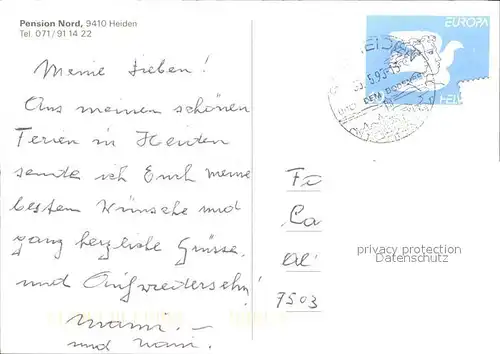 Pension Nord, 9410 Heiden
Tel. 071/91 14 22
Meine Lieben!
Aus meinen schönen
Ferien in Heiden
sende ich Euch meine
besten Wünsche und
ganz herzliche Grüsse,
und Aufwiedersehn!
und
EUROPA
HEIDEN
DEM BODENSEE
HEL
Fi
Ca
al
7503
privacy protection
Datenschutz